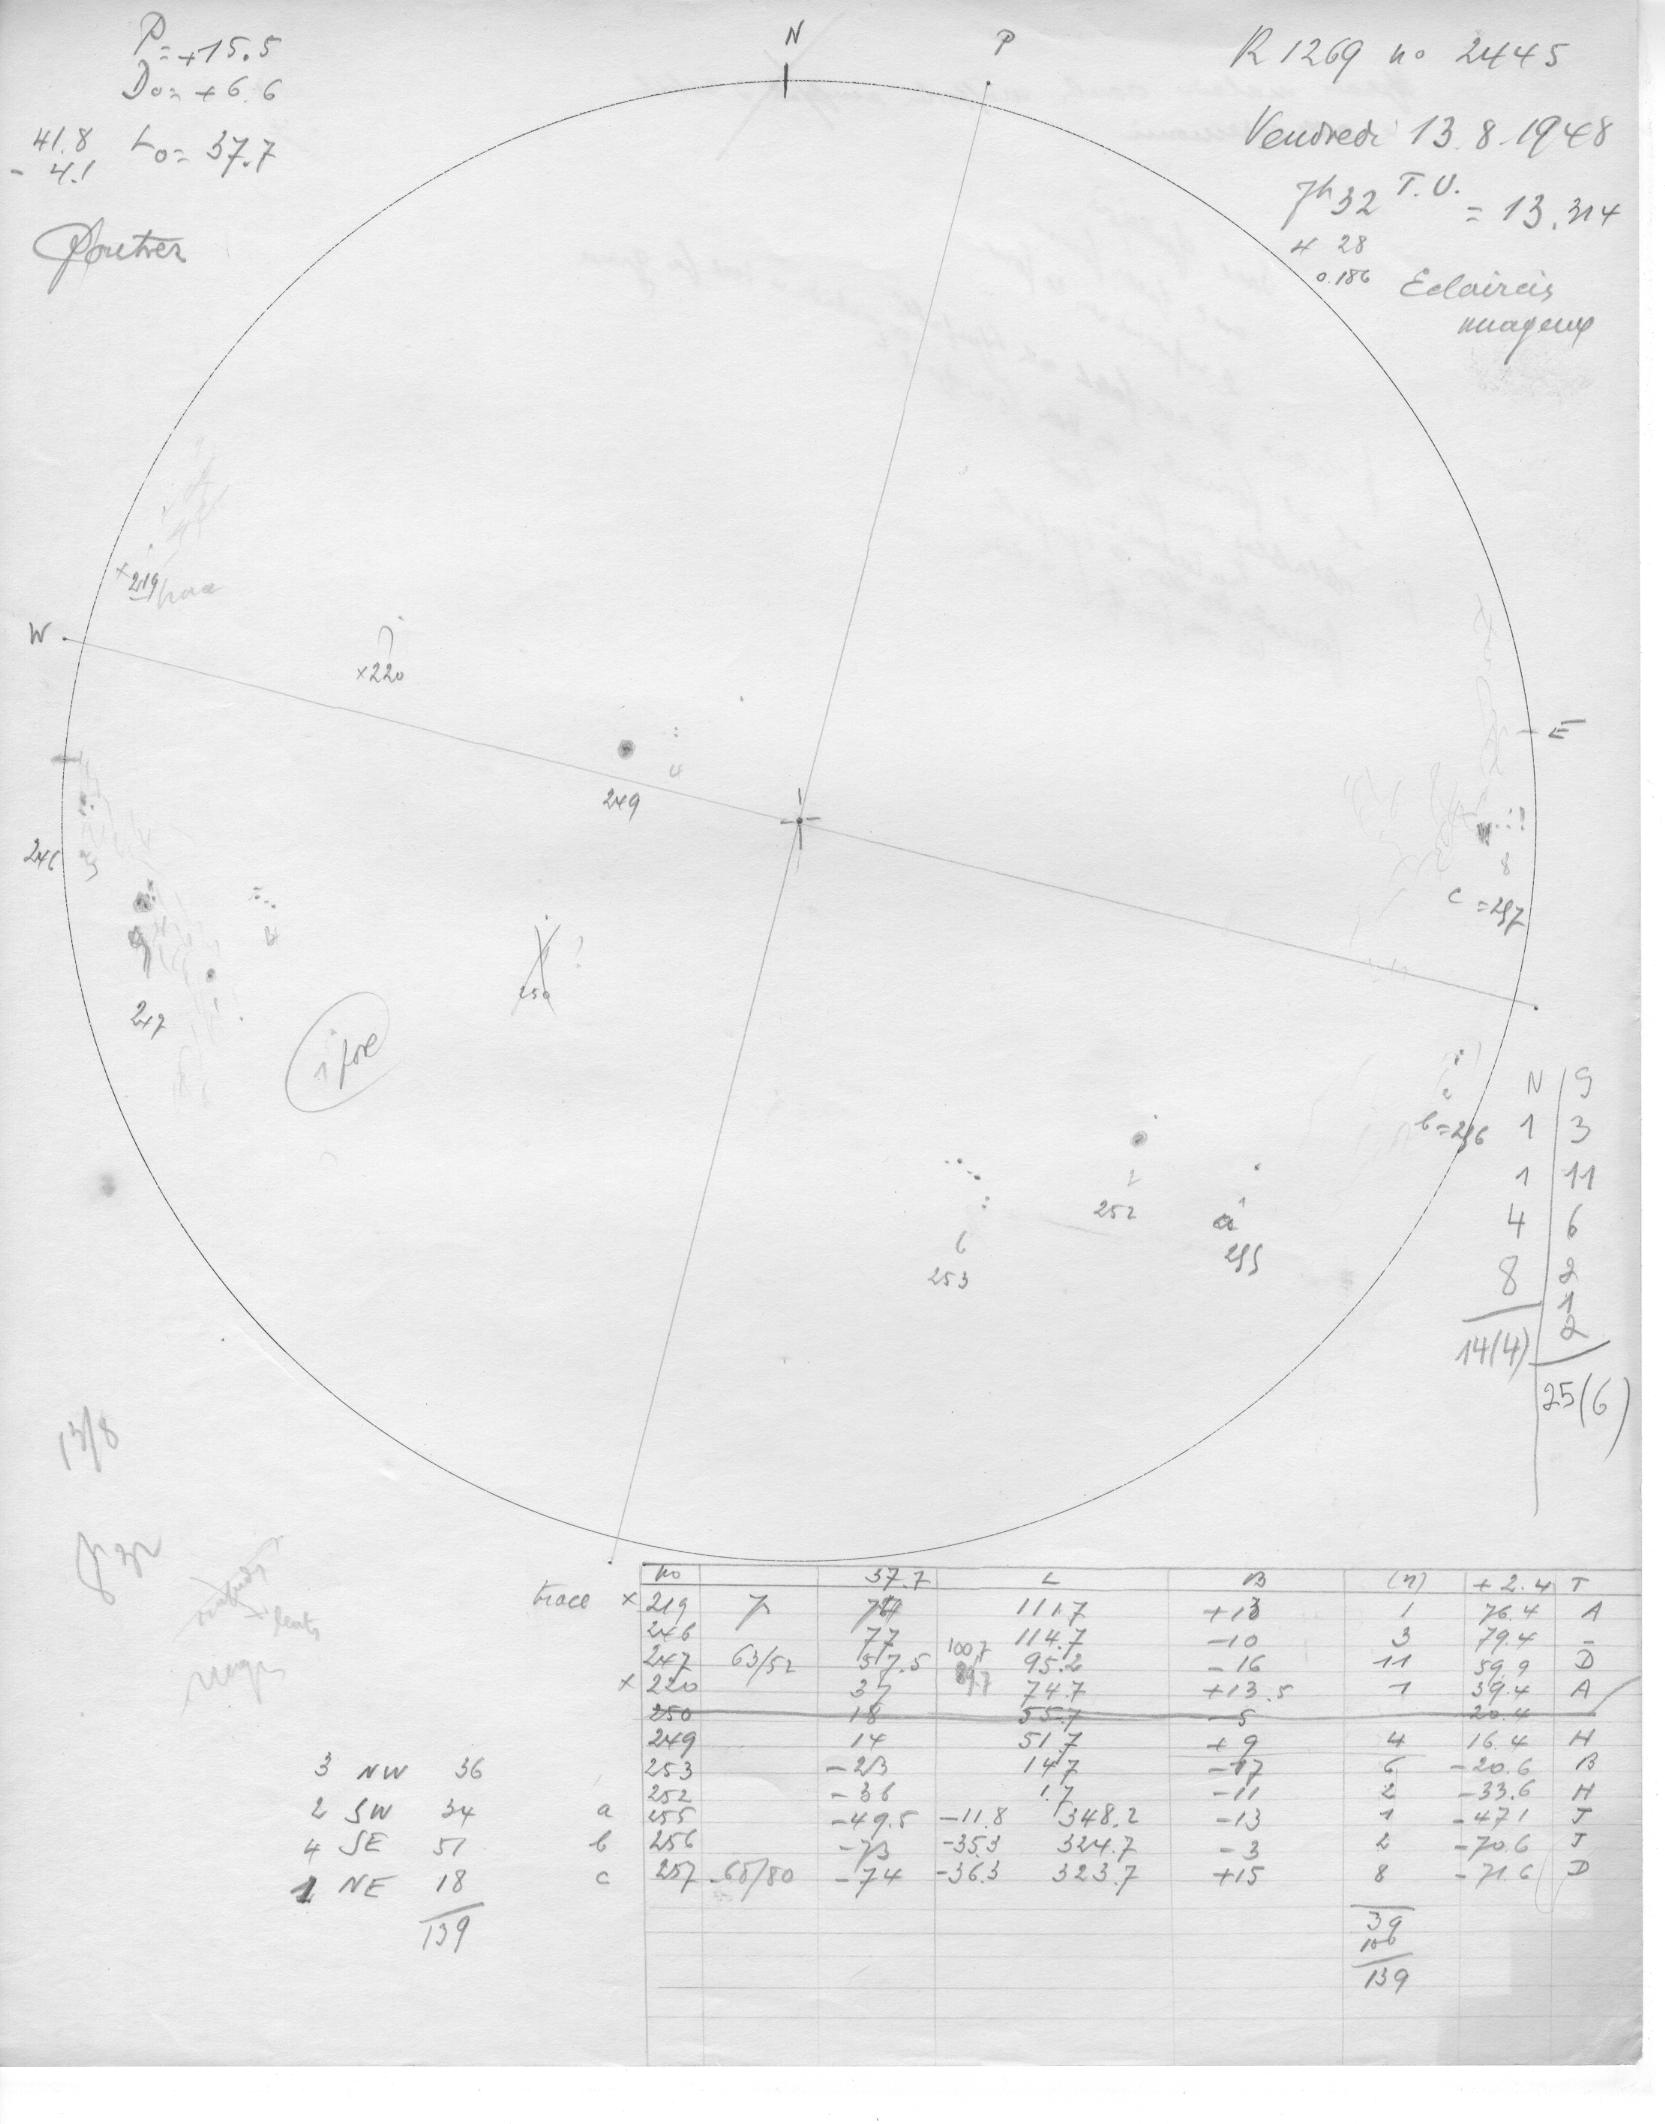 P=+15.5
D0=+6.6
41.8 L0=37.7
- 4.1
N
P
R 1269 no 2445
Vendredi 13.8.1948
7h32 T.U. = 13.314
4 28
0.186
Eclaircis
nuageux
x219 trace
W
x220
249
E
246
247
4
250
?
8
c=257
b=256
252
a
255
6
253
N | S
1 | 3
1 | 11
4 | 6
8 | 2
1
2
14(4)
25(6)
13/8
no 37.7 L B (n) +2.4 T
trace x 219 111.7 +13 1 76.4 A
246 77 114.7 -10 3 79.4 -
247 63/52 57.5 100.7 95.2 -16 11 59.9 D
89.7
x 220 37 74.7 +13.5 1 39.4 A
250 18 55.7 -5 20.4
249 14 51.7 +9 4 16.4 H
253 -23 14.7 -17 6 -20.6 B
252 -36 1.7 -11 2 -33.6 H
a 255 -49.5 -11.8 348.2 -13 1 -47.1 J
b 256 -73 -35.3 324.7 -3 2 -70.6 J
c 257 -68/80 -74 -36.3 323.7 +15 8 -71.6 D
39
100
139
3 NW 36
2 SW 34
4 SE 51
1 NE 18
139